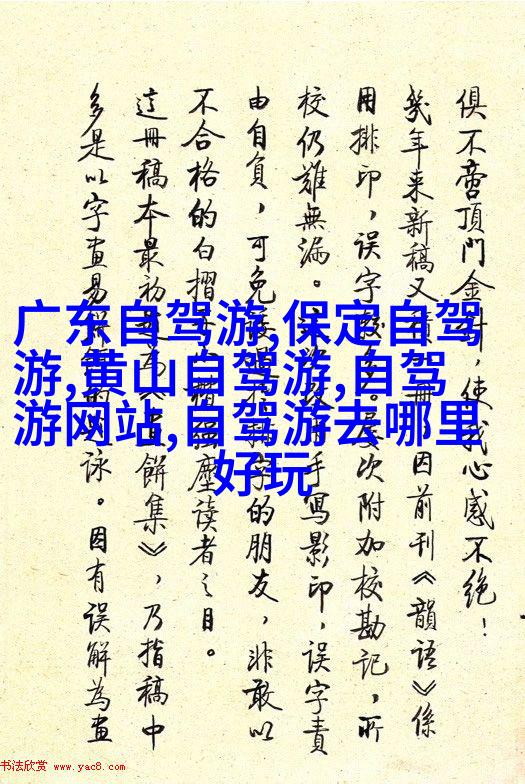 广东自驾游,保定自驾
游,黄山自驾游,自驾
游网站,自驾游去哪里
好玩
俱不啻頂門金針，使我心感不絕！
幾年来新稿又積一冊，因前刊《韻語》係
用排印，誤字較多。屢次附加校勘記，所
校仍難無漏。手寫影印，誤字責
由自負，可免排字的朋友，非敢以
不合格的白摺小楷強塵读者之目。
這冊稿本最初餅集》，乃指稿中
多是以字畫易餅的詠。因有误解為畫
书法欣赏 www.yac8.com